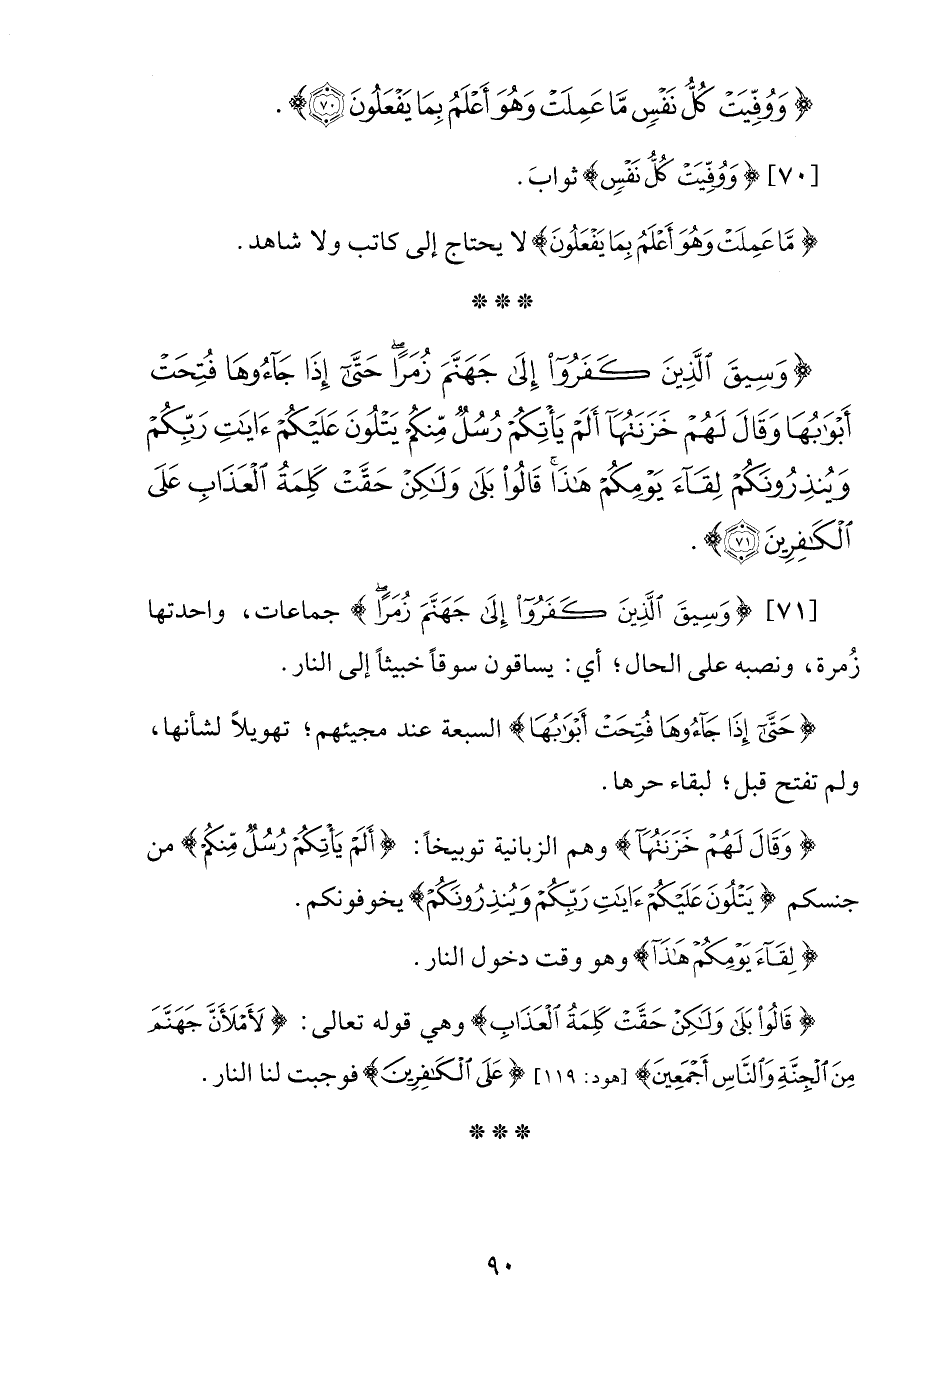 ﴿ وَوُفِّيَتْ كُلُّ نَفْسٍ مَّا عَمِلَتْ وَهُوَ أَعْلَمُ بِمَا يَفْعَلُونَ ٧٠﴾ .
[٧٠] ﴿ وَوُفِّيَتْ كُلُّ نَفْسٍ﴾ ثوابَ.
﴿ مَّا عَمِلَتْ وَهُوَ أَعْلَمُ بِمَا يَفْعَلُونَ﴾ لا يحتاج إلى كاتب ولا شاهد.
* * *
﴿وَسِيقَ ٱلَّذِينَ كَفَرُوٓا۟ إِلَىٰ جَهَنَّمَ زُمَرًاۖ حَتَّىٰٓ إِذَا جَآءُوهَا فُتِحَتْ
أَبْوَٰبُهَا وَقَالَ لَهُمْ خَزَنَتُهَآ أَلَمْ يَأْتِكُمْ رُسُلٌ مِّنكُمْ يَتْلُونَ عَلَيْكُمْ ءَايَٰتِ رَبِّكُمْ
وَيُنذِرُونَكُمْ لِقَآءَ يَوْمِكُمْ هَٰذَاۚ قَالُوا۟ بَلَىٰ وَلَٰكِنْ حَقَّتْ كَلِمَةُ ٱلْعَذَابِ عَلَى
ٱلْكَٰفِرِينَ ٧١﴾ .
[٧١] ﴿ وَسِيقَ ٱلَّذِينَ كَفَرُوٓا۟ إِلَىٰ جَهَنَّمَ زُمَرًاۖ ﴾ جماعات، واحدتها
زُمرة، ونصبه على الحال؛ أي: يساقون سوقاً خبيثاً إلى النار.
﴿ حَتَّىٰٓ إِذَا جَآءُوهَا فُتِحَتْ أَبْوَٰبُهَا﴾ السبعة عند مجيئهم؛ تهويلاً لشأنها،
ولم تفتح قبل؛ لبقاء حرها.
﴿ وَقَالَ لَهُمْ خَزَنَتُهَآ﴾ وهم الزبانية توبيخاً: ﴿ أَلَمْ يَأْتِكُمْ رُسُلٌ مِّنكُمْ﴾ من
جنسكم ﴿ يَتْلُونَ عَلَيْكُمْ ءَايَٰتِ رَبِّكُمْ وَيُنذِرُونَكُمْ﴾ يخوفونكم.
﴿ لِقَآءَ يَوْمِكُمْ هَٰذَآ﴾ وهو وقت دخول النار.
﴿ قَالُوا۟ بَلَىٰ وَلَٰكِنْ حَقَّتْ كَلِمَةُ ٱلْعَذَابِ﴾ وهي قوله تعالى: ﴿ لَأَمْلَأَنَّ جَهَنَّمَ
مِنَ ٱلْجِنَّةِ وَٱلنَّاسِ أَجْمَعِينَ﴾ [هود: ١١٩] ﴿ عَلَى ٱلْكَٰفِرِينَ﴾ فوجبت لنا النار.
* * *
٩٠